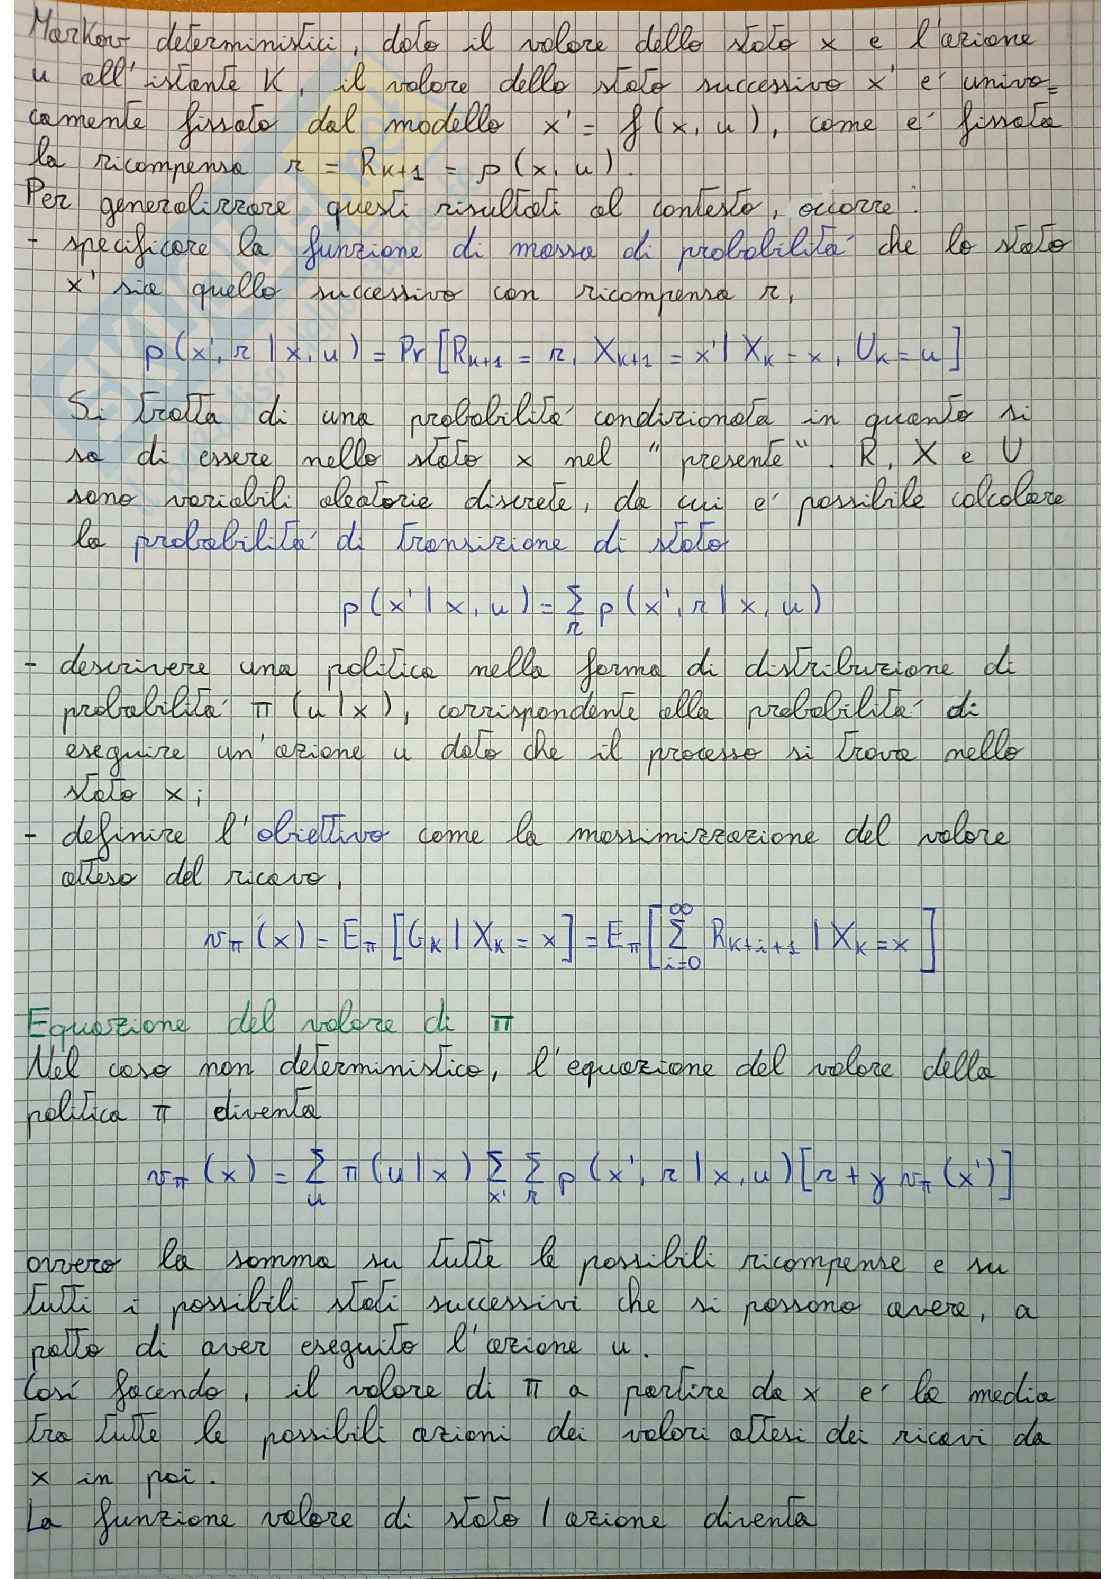 Markov deterministici, dato il valore dello stato x e l'azione
u all'istante K, il valore dello stato successivo x' e' univo=
camente fissato dal modello x' = f(x, u), come e' fissata
la ricompensa r = R_{K+1} = ρ(x, u).
Per generalizzare questi risultati al contesto, occorre:
- specificare la funzione di massa di probabilita' che lo stato
x' sia quello successivo con ricompensa r,
p(x', r | x, u) = Pr[R_{K+1} = r, X_{K+1} = x' | X_K = x, U_K = u]
Si tratta di una probabilita' condizionata in quanto si
sa di essere nello stato x nel "presente". R, X e U
sono variabili aleatorie discrete, da cui e' possibile calcolare
la probabilita' di transizione di stato
p(x' | x, u) = Σ_r p(x', r | x, u)
- descrivere una politica nella forma di distribuzione di
probabilita' π(u | x), corrispondente alla probabilita' di
eseguire un'azione u dato che il processo si trova nello
stato x;
- definire l'obiettivo come la massimizzazione del valore
atteso del ricavo,
v_π(x) = E_π[G_K | X_K = x] = E_π[Σ_{i=0}^∞ R_{K+i+1} | X_K = x]
Equazione del valore di π
Nel caso non deterministico, l'equazione del valore della
politica π diventa
v_π(x) = Σ_u π(u | x) Σ_{x'} Σ_r p(x', r | x, u)[r + γ v_π(x')]
ovvero la somma su tutte le possibili ricompense e su
tutti i possibili stati successivi che si possono avere, a
patto di aver eseguito l'azione u.
Così facendo, il valore di π a partire da x e' la media
tra tutte le possibili azioni dei valori attesi dei ricavi da
x in poi.
La funzione valore di stato / azione diventa